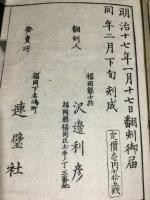 明治十七年一月十七日翻刻御届
同年二月下旬刻成
定價壱円
翻刻人
福岡縣士族
沢邊利彦
福岡縣福岡
發賣所
福岡下名嶋町
連璧社